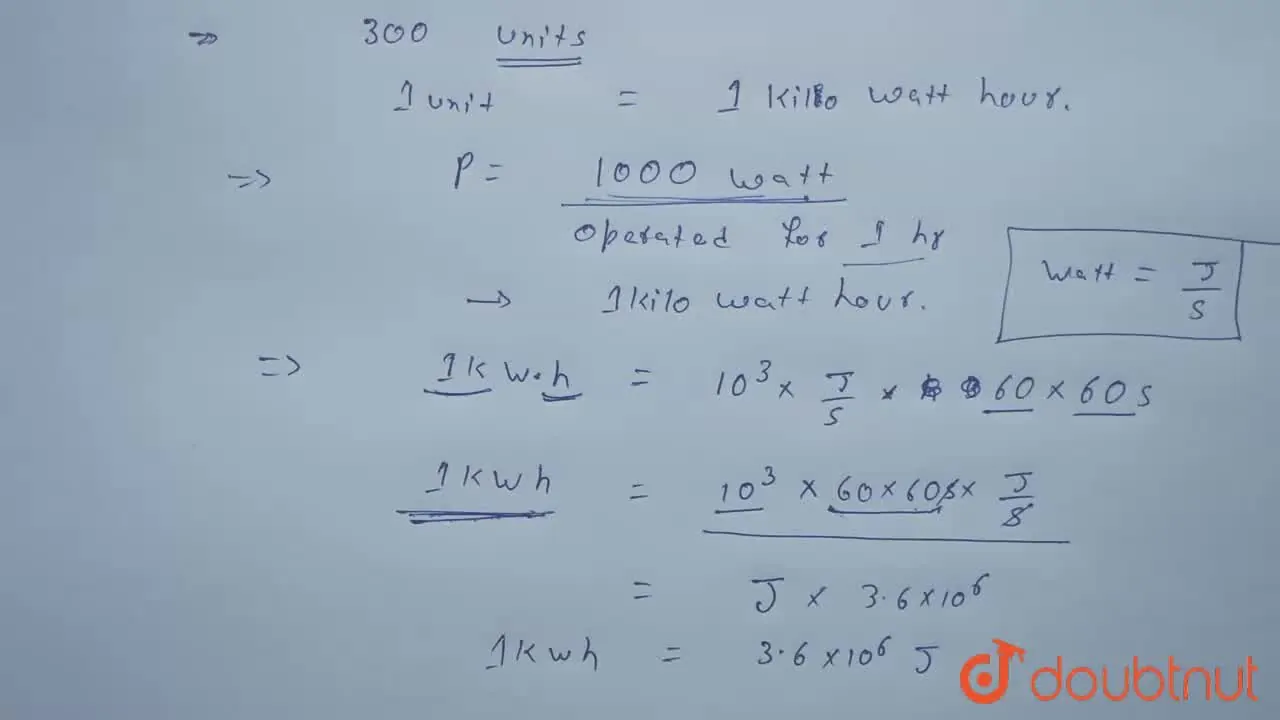 ⇒ 300 units
1 unit = 1 kilo watt hour.
⇒ P = 1000 watt
operated for 1 hr
→ 1 kilo watt hour.
watt = J/s
⇒ 1 k w.h = 10³ × J/s × 60 × 60 s
1 k w h = 10³ × 60 × 60 s × J/s
= J × 3.6 × 10⁶
1 k w h = 3.6 × 10⁶ J
doubtnut